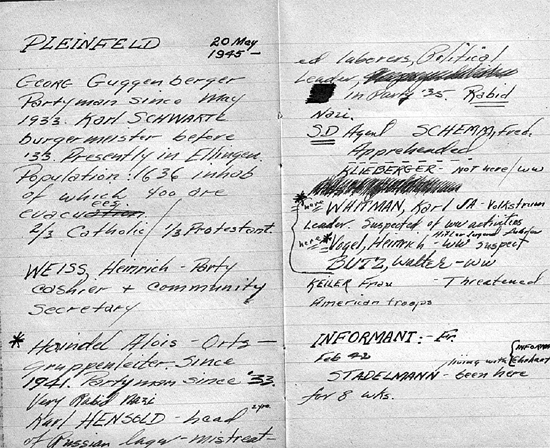 PLEINFELD
20 May
1945 -
GEORG Guggenberger
Partyman since May
1933. Karl SCHWARTZ
burgermeister before
'33. Presently in Ellingen.
Population: 1636 inhab
of which 400 are
evacuees.
2/3 Catholic / 1/3 Protestant.
WEISS, Heinrich - Party
cashier + community
Secretary
* Heindel Alois - Orts -
gruppenleiter. Since
1941. Partyman since '33.
Very Rabid Nazi
Karl HENSOLD - head 2 yrs
of Russian lager - mistreat-
ed laborers, Political
Leader,
in Party '35. Rabid
Nazi.
S.D Agent SCHEMM, Fred.
Apprehended
KLIEBERGER - NOT here / WW
* here = WHITMAN, Karl SA - Volkstrum
Leader. Suspected of WW activities
here = * Vogel, Heinrich - WW Suspect Hitler Jugend
BUTZ, Walter - WW
KELLER Frau - Threatened
American troops
INFORMANT: - Fr.
Feb 42 living with { INFORM Ehrhart
STADELMANN - been here
for 8 wks.